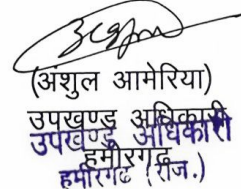 (अंशुल आमेरिया)
उपखण्ड अधिकारी
उपखण्ड अधिकारी
हमीरगढ़
हमीरगढ (राज.)